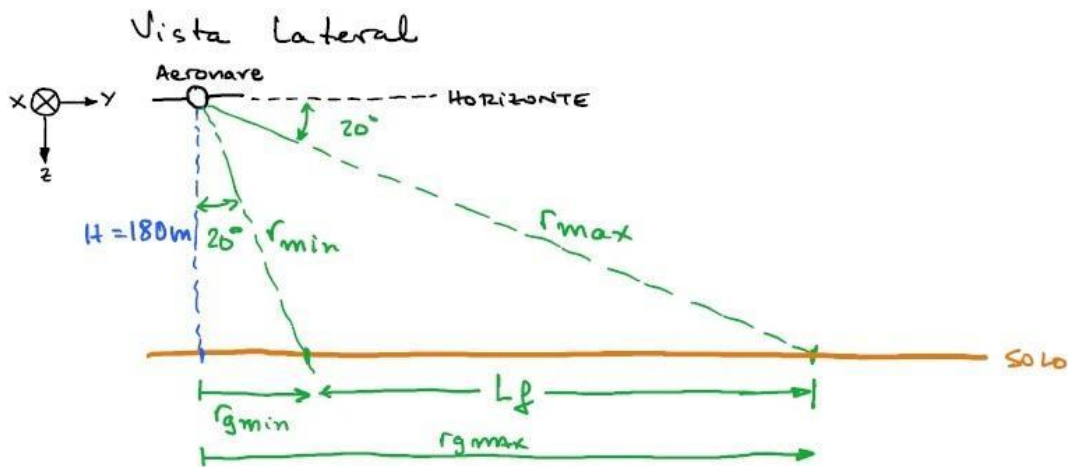 Vista Lateral
Aeronave
X Y HORIZONTE
20°
Z
H = 180m 20° rmin rmax
SOLO
Lf
rgmin
rgmax